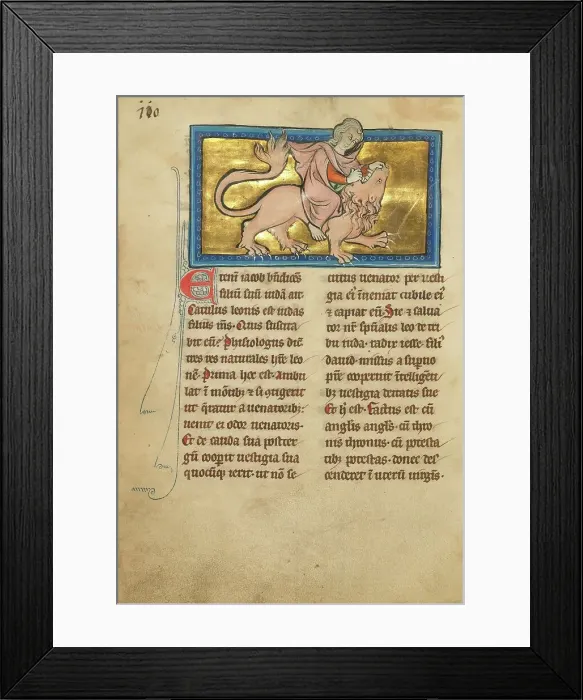 Etenī iacob bn̄dicēs
filiū suū iudā ait
Catulus leonis est iudas
filius mꝰ. Quis suscita
bit eū. Phisiologus dic̄
tres res naturales hr̄e leo
nē. Prima hec est. Ambu
lat ī mōtibꝫ ⁊ si ꝯtigerit
ut q̄ratur a uenatoribꝫ:
uenit ei odor uenatoris.
Et de cauda sua poster
gū coop̄it uestigia sua
quocūq; ierit. ut nō se
cutus uenator per uesti
gia ei īueniat cubile eiꝰ
⁊ capiat eū. Sic ⁊ salua
tor nr̄ sp̄ualis leo de tri
bu iuda. radix iesse. filiꝰ
dauid. missus a sup̄no
pr̄e cooperuit ītelligēti
bꝫ uestigia deitatis sue
Et h̄ est. Factus est cū
angl̄is angl̄s. cū thro
nis thronus. cū potesta
tibꝫ potestas. donec des
cenderet ī uterū uirgīs.